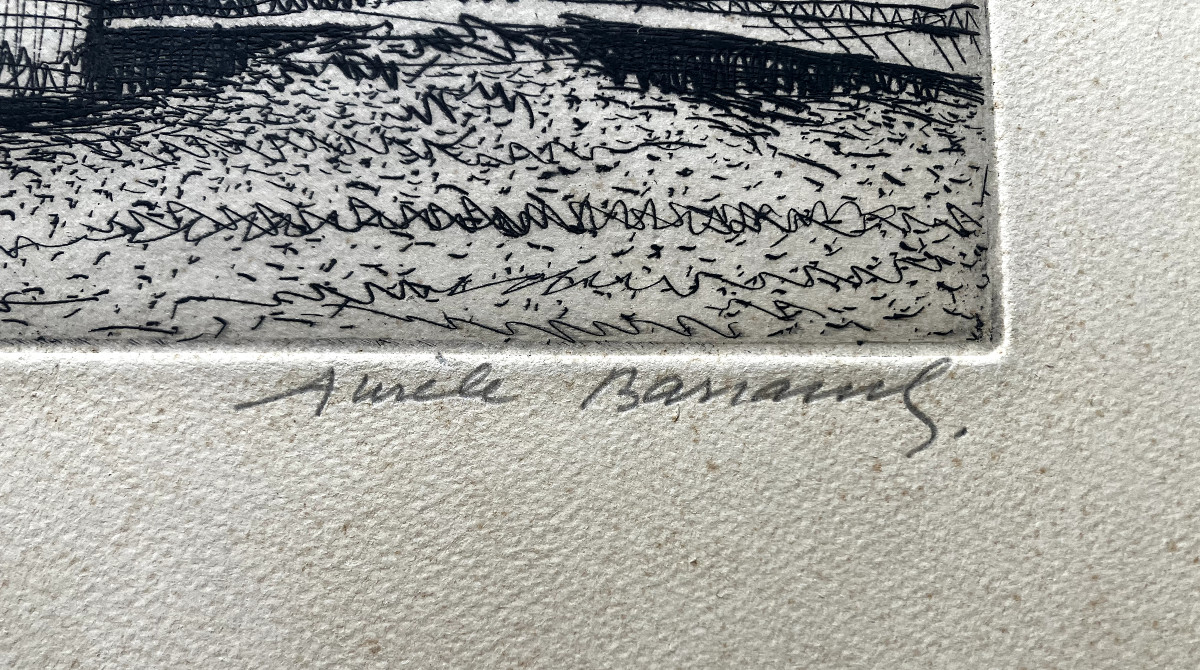 Aurèle Barraud.